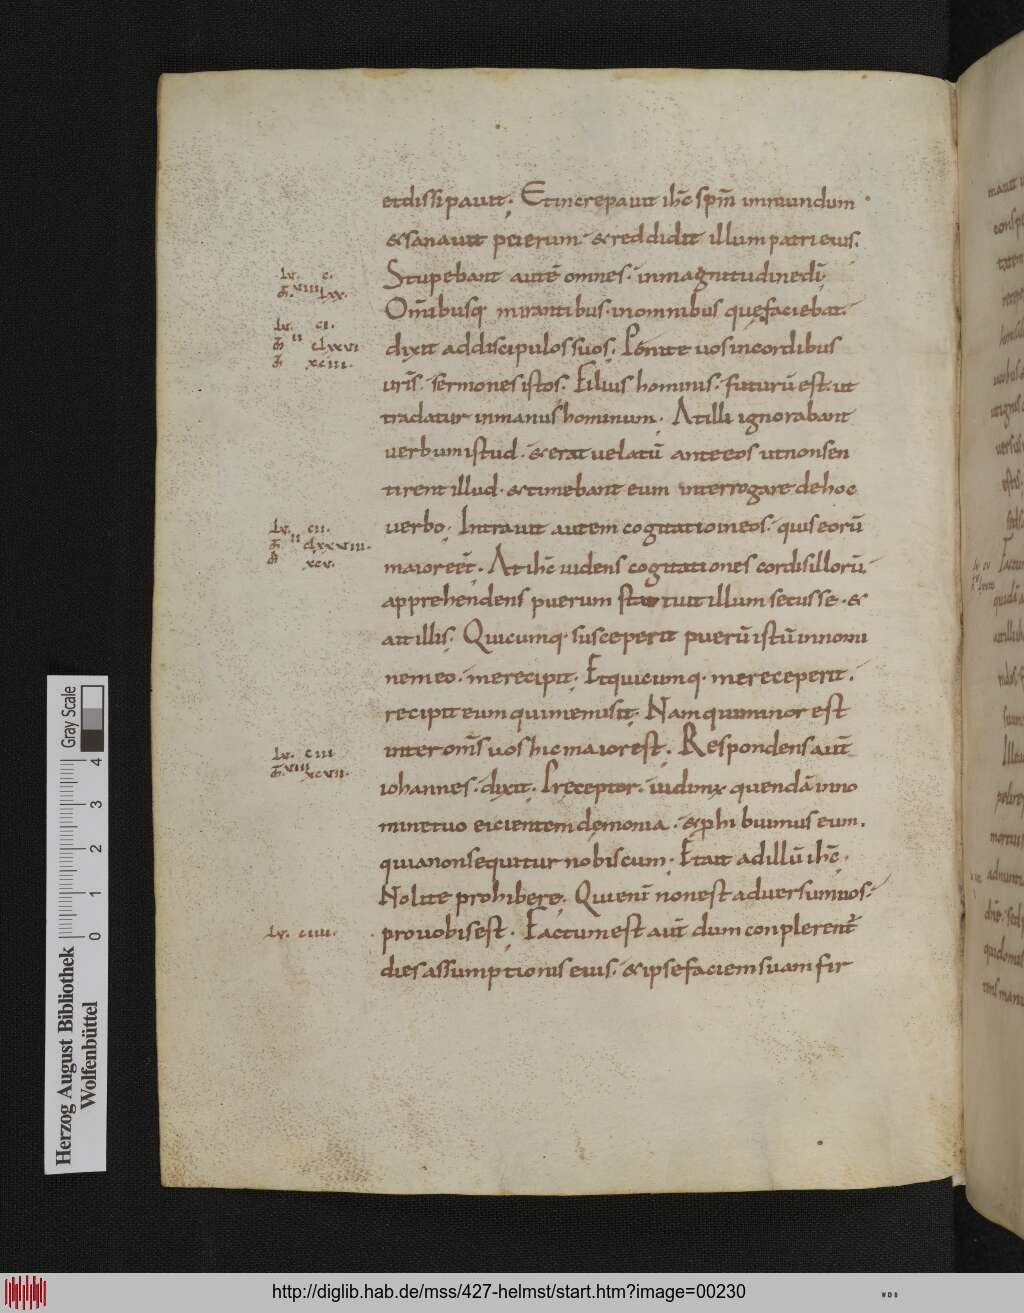 etdissipauit. Etincrepauit ihc̄ spm̄ inmundum
&sanauit puerum. &reddidit illum patri eius.
Lv. c.
Stupebant autē omnes. inmagnitudinedī.
xiiii lxx.
Omībusq. mirantibus. inomnibus quęfaciebat.
Lv. ci.
ii clxxvi
dixit addiscipulossuos. Ponite uosincordibus
xciii.
uris̄. sermonesistos. Filius hominis. futurū est. ut
tradatur inmanushominum. Atilli ignorabant
uerbumistud. &erat uelatū anteeos utnonsen
tirent illud. &timebant eum interrogare dehoc
Lv. cii.
ii clxxxiii.
xcv.
uerbo. Intrauit autem cogitatioineos. quis eorū
maioreēt. Atihc̄ uidens cogitationes cordisillorū.
apprehendens puerum statuit illum secusse. &
ait illis. Quicumq. susceperit puerū istū innomi
nemeo. merecipit. Etquicumq. mereceperit.
recipit eum quimemisit. Namquiminor est
Lv. ciii
viii xcvii.
inter om̄s uos hicmaiorest. Respondensaut̄
iohannes. dixit. Preceptor. uidimꝰ quendā inno
minetuo eicientemdęmonia. &prohibuimus eum.
quianonsequitur nobiscum. Etait adillū ihc̄.
Nolite prohibere. Quienī nonest aduersumuos.
Lv. ciiii.
prouobisest. Factumest aut̄ dum conplerent̄
dies assumptionis eius. &ipsefaciemsuam fir
Herzog August Bibliothek
Wolfenbüttel
Gray Scale
0 1 2 3 4
http://diglib.hab.de/mss/427-helmst/start.htm?image=00230